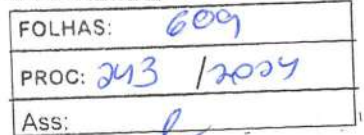 FOLHAS: 609
PROC: 243 /2024
Ass: